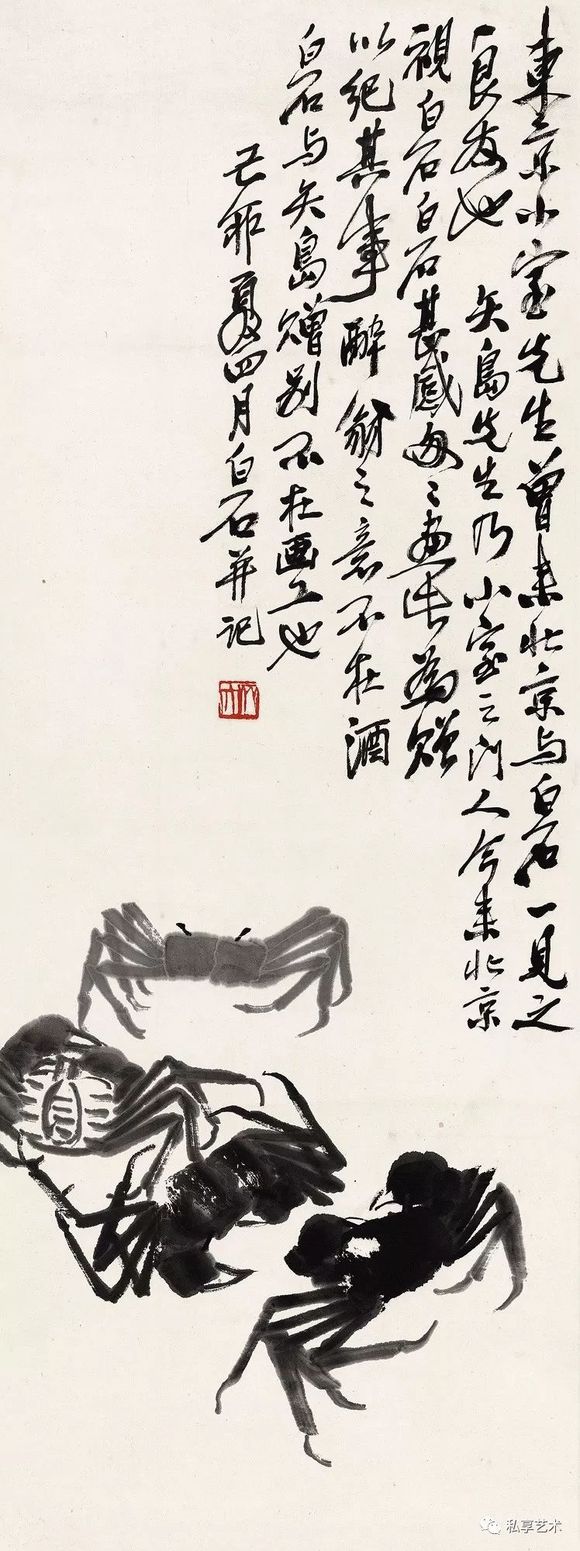 東京小室先生曾来北京与白石一見之
良友也 矢島先生乃小室之门人今来北京
視白石白石甚感画此為贈
以紀其事醉翁之意不在酒
白石与矢島贈别不在画工也
夏四月白石并记
私享艺术